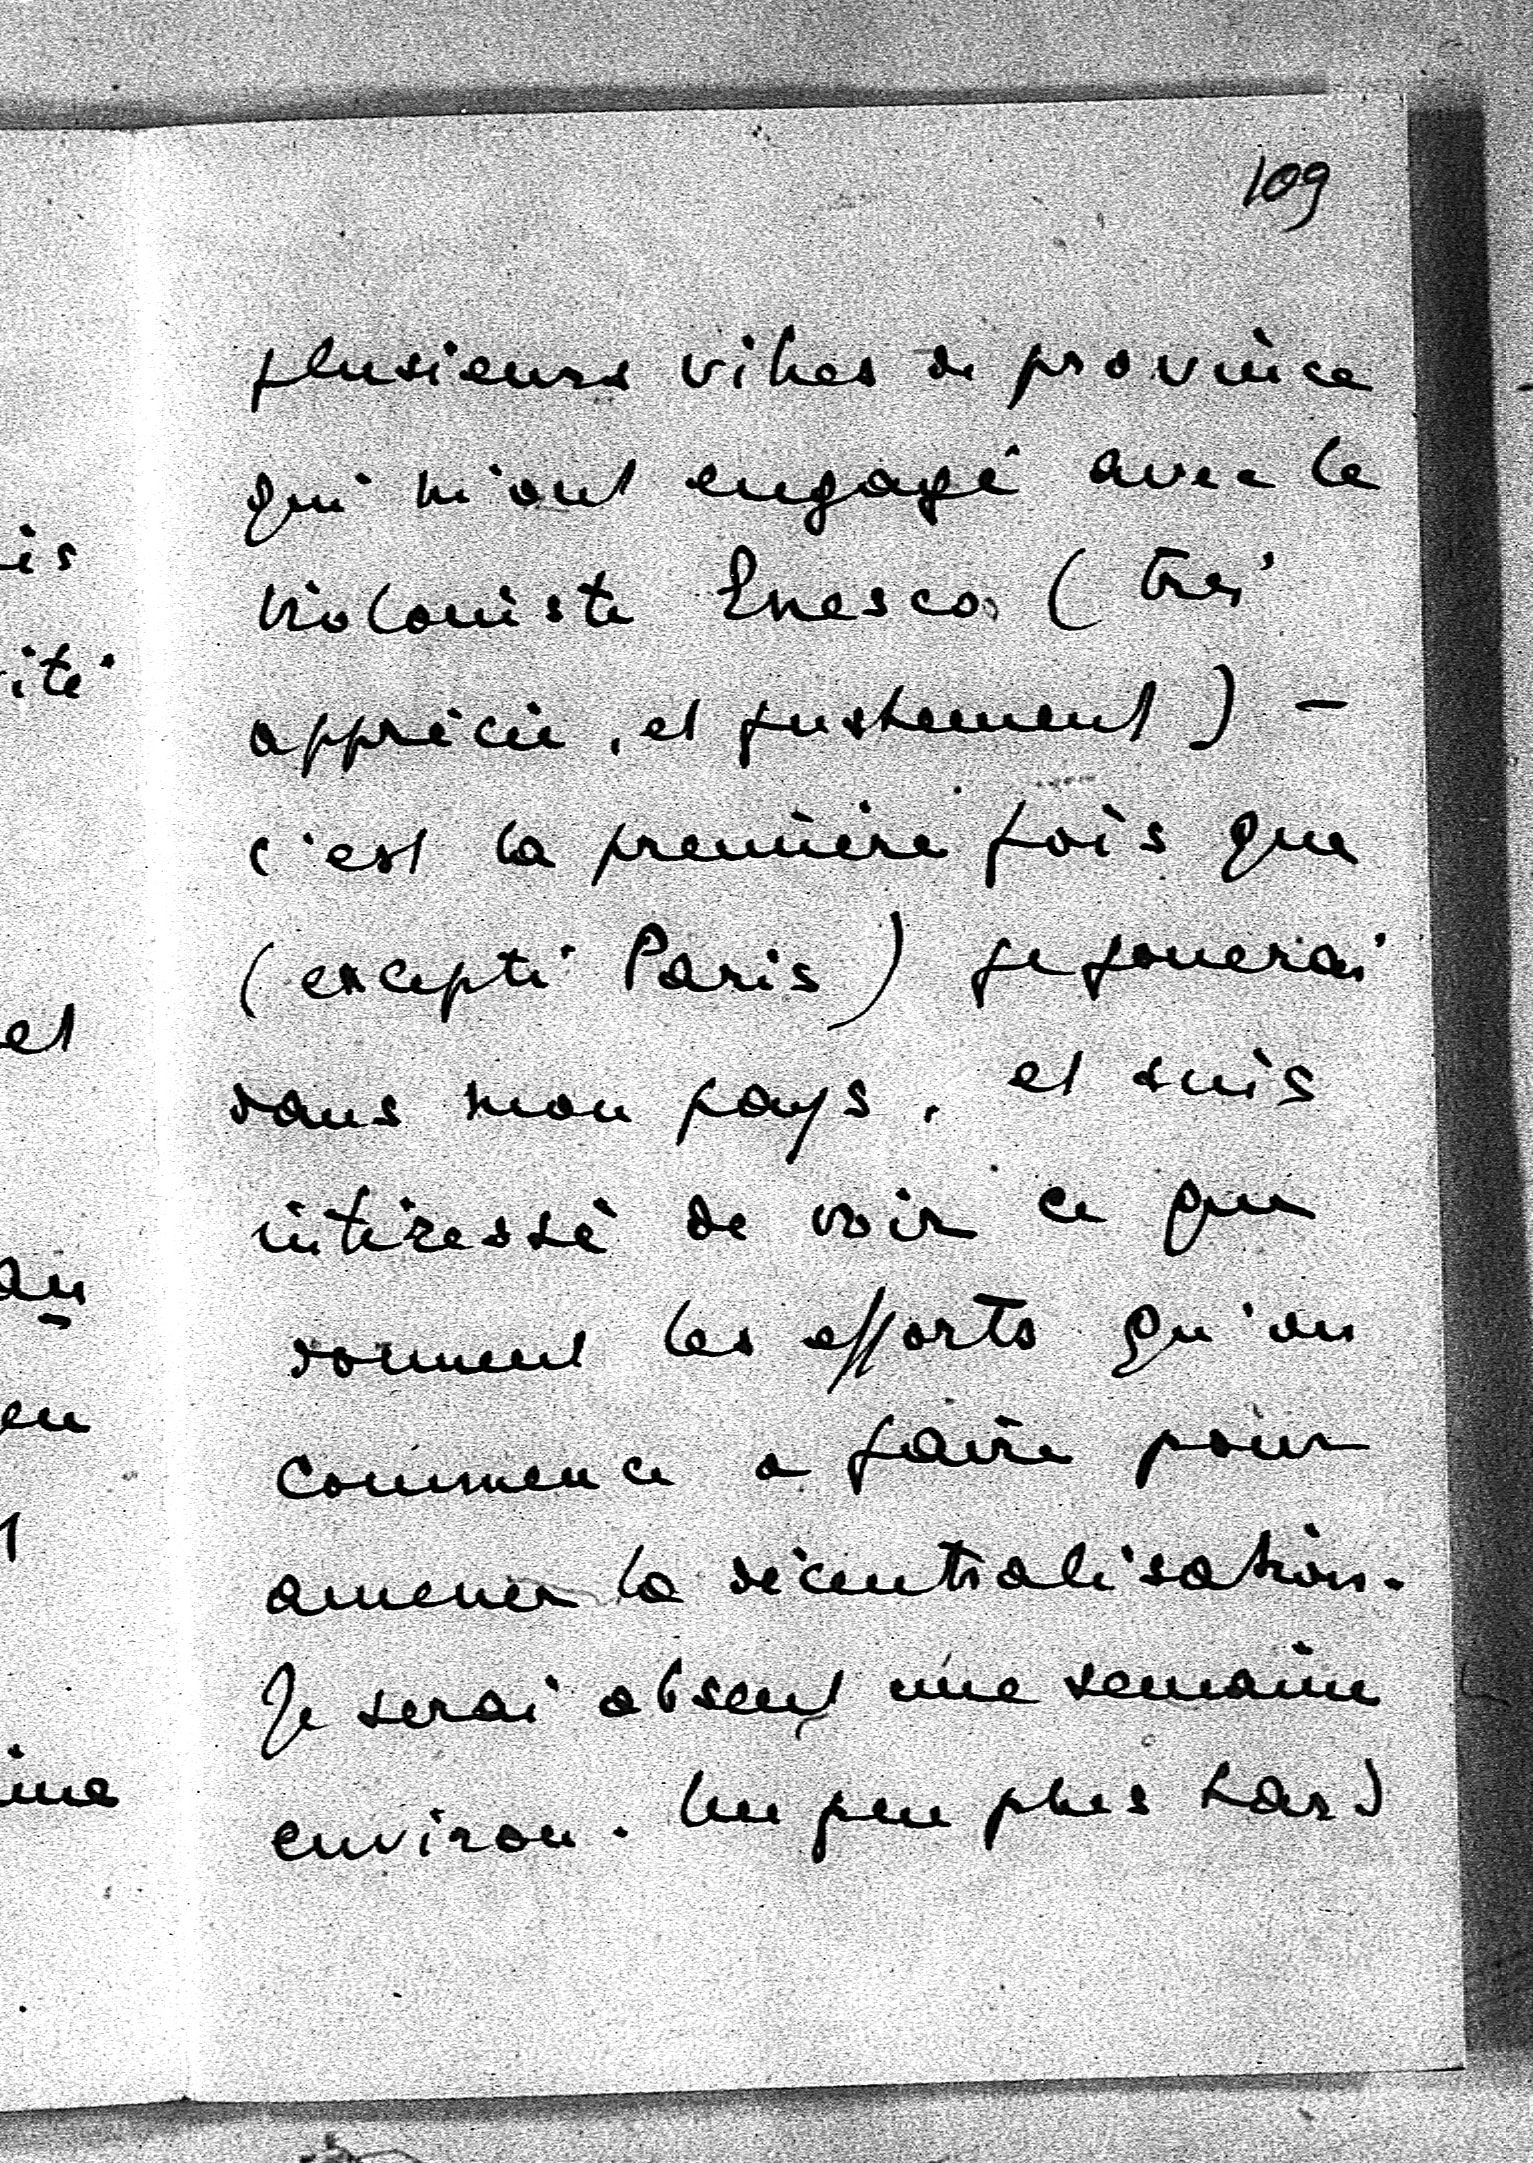 109
plusieurs villes de province
qui m'ont engagé avec le
violoniste Enesco (très
apprécié, et justement) -
c'est la première fois que
(excepté Paris) je jouerai
dans mon pays, et suis
intéressé de voir ce que
donnent les efforts qu'on
commence a faire pour
amener la décentralisation.
Je serai absent une semaine
environ. Un peu plus tard
is
ité
et
au
en
ine